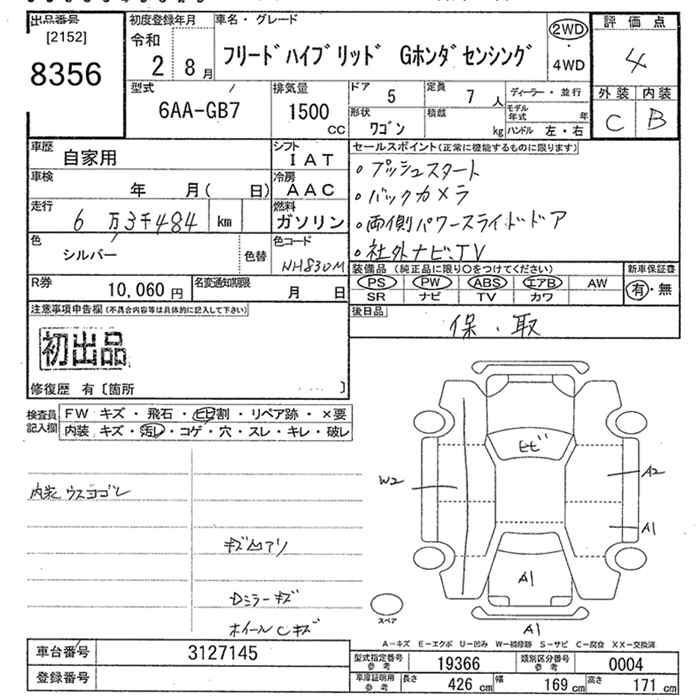 出品番号 初度登録年月 車名・グレード 評価点
[2152] 令和
8356 2 8月 フリードハイブリッド Gホンダセンシング 2WD・4WD 4
型式 排気量 ドア 5 定員 7人 ディーラー・並行 外装 内装
6AA-GB7 1500cc 形状 ワゴン 積載 kg モデル年式 年 C B
ハンドル 左・右
車歴 自家用 シフト IAT セールスポイント(正常に機能するものに限ります)
車検 年 月( 日) 冷房 AAC ・プッシュスタート
・バックカメラ
走行 6万3千484 km 燃料 ガソリン ・両側パワースライドドア
色 シルバー 色替 色コード NH830M ・社外ナビ、TV
装備品(純正品に限り○をつけてください) 新車保証書
R券 10,060円 名変通知期限 月 日 PS PW ABS エアB AW 有・無
SR ナビ TV カワ
注意事項申告欄(不具合内容等は具体的に記入して下さい) 後日品
保・取
初出品
修復歴 有〔箇所 〕
検査員記入欄 FW キズ・飛石・ヒビ割・リペア跡・×要
内装 キズ・汚レ・コゲ・穴・スレ・キレ・破レ
ヒビ
W2 A2
内装 ウスヨゴレ
A1
A1
Dミラーキズ
スペア
ホイールCキズ A1
A-キズ E-エクボ U-凹み W-補修跡 S-サビ C-腐食 XX-交換済
車台番号 3127145 型式指定番号 参考 19366 類別区分番号 参考 0004
登録番号 車庫証明用 参考 長さ 426cm 幅 169cm 高さ 171cm